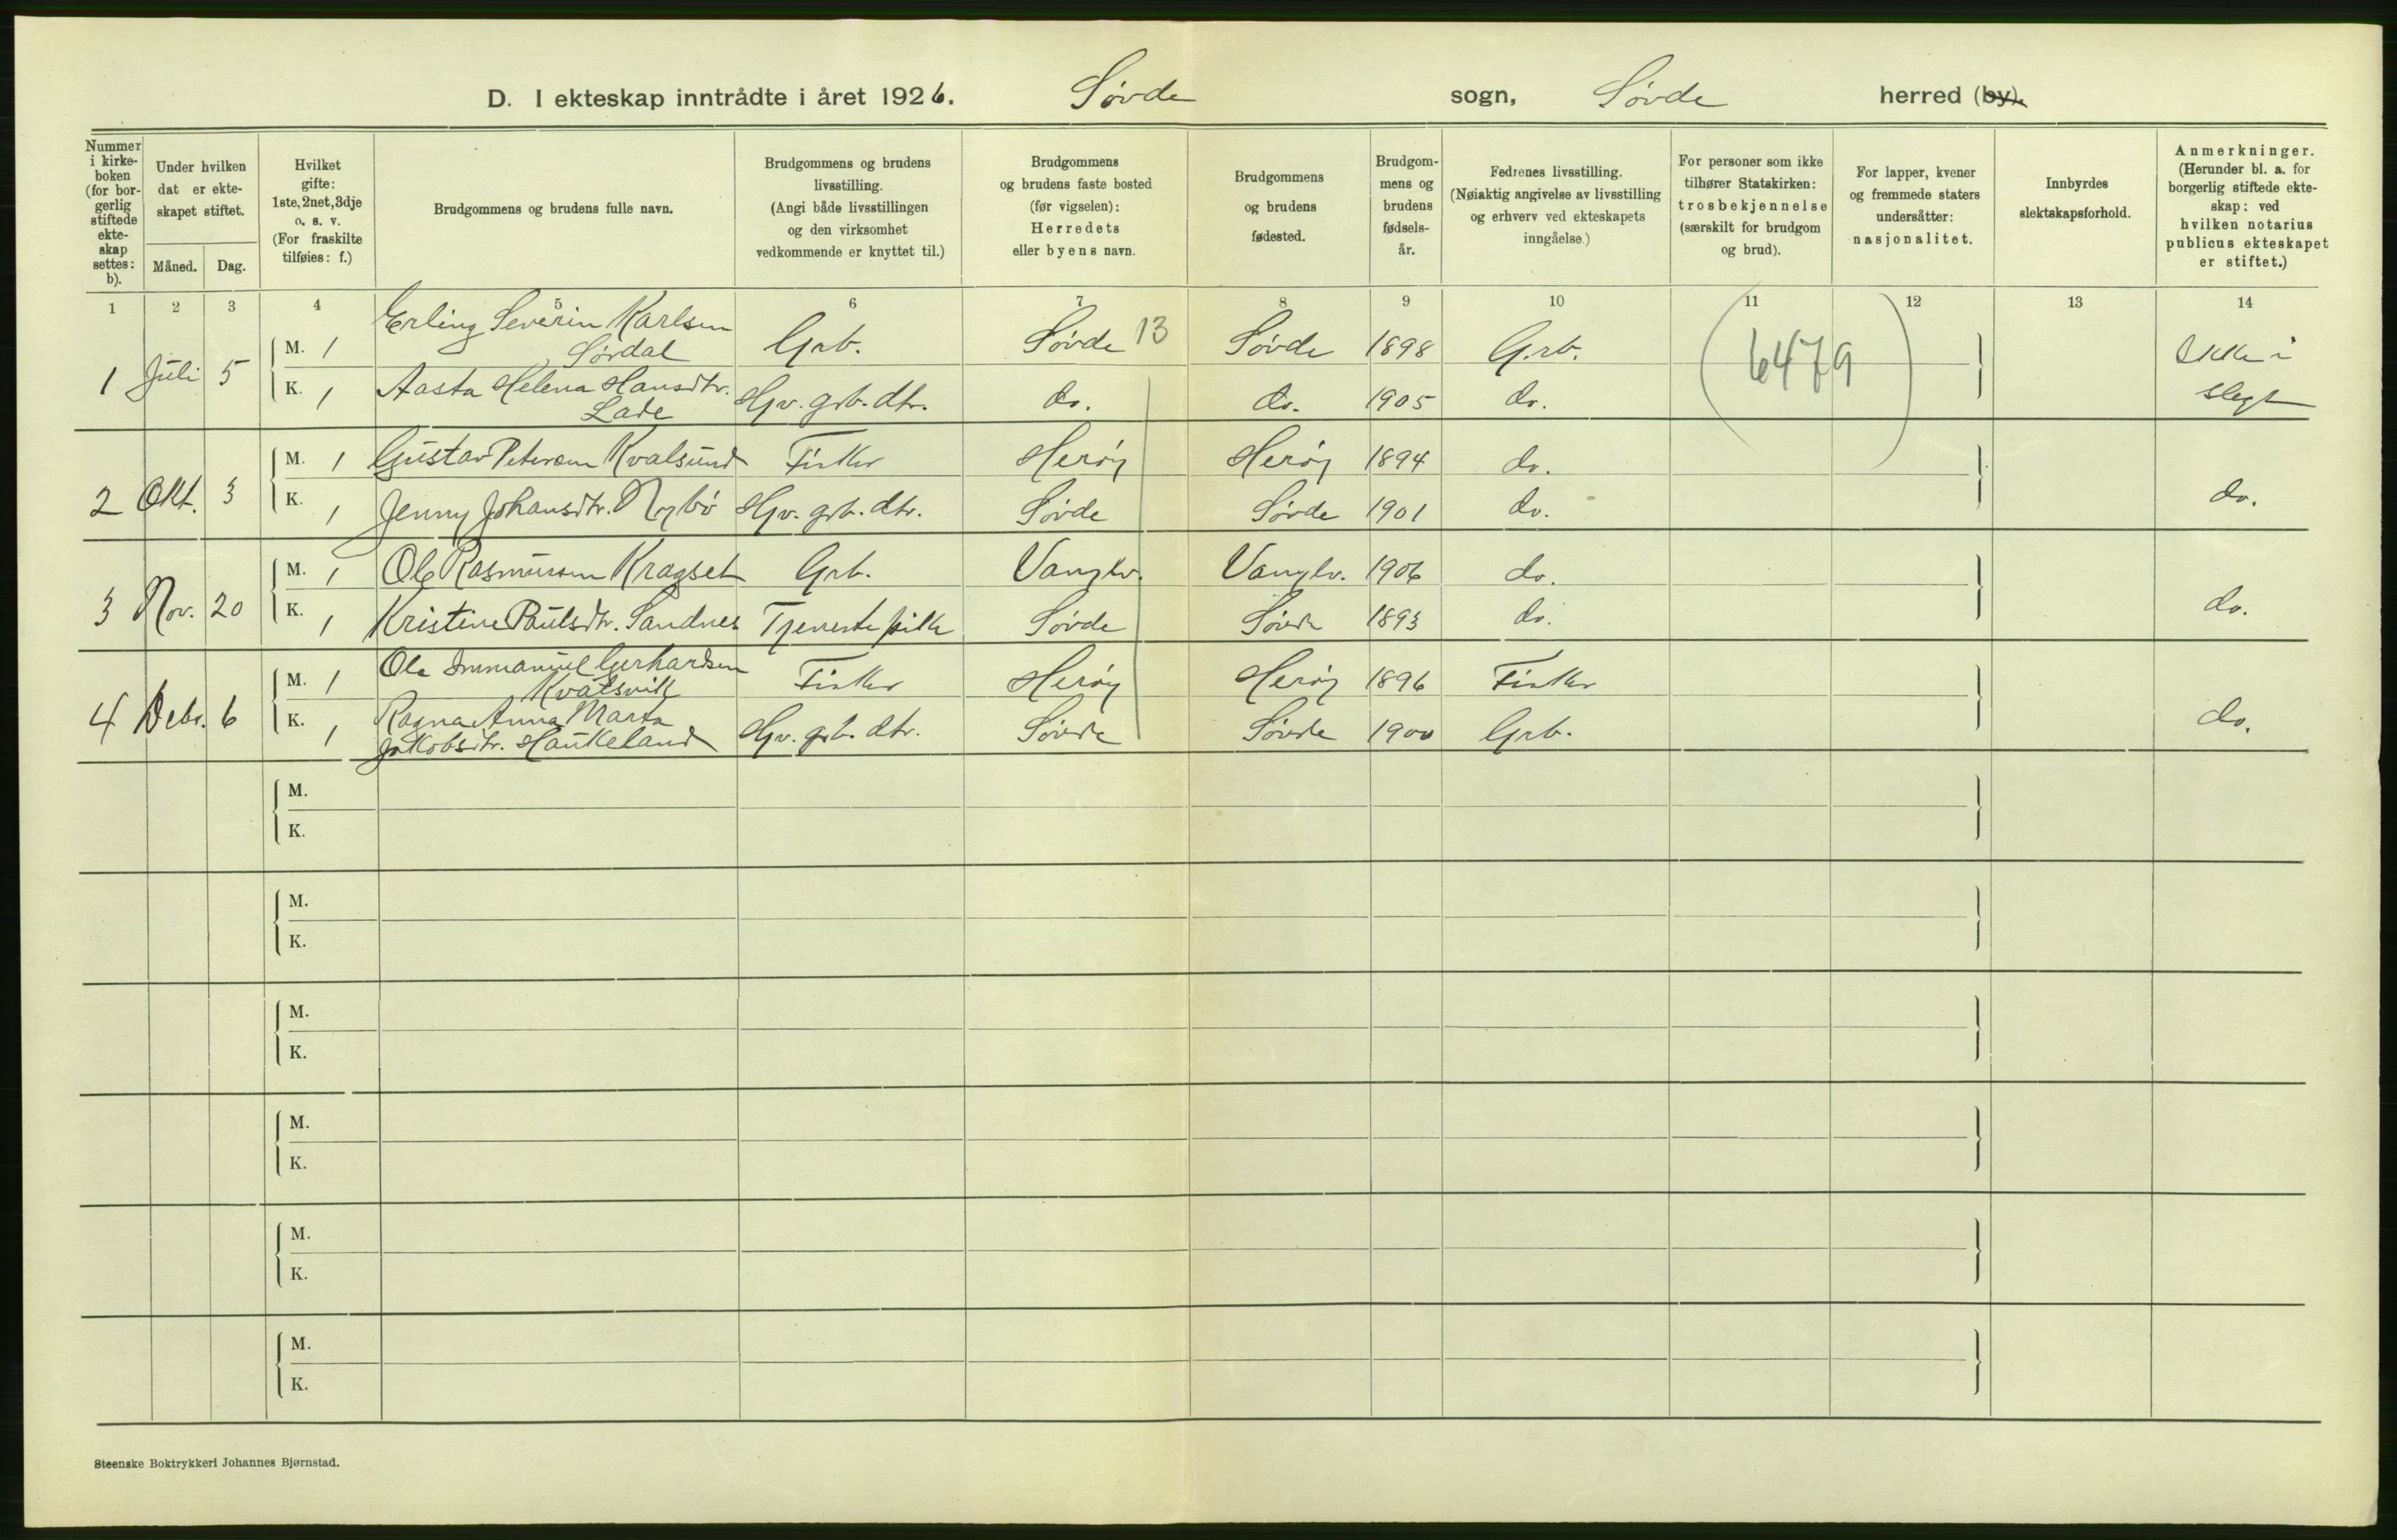 D. I ekteskap inntrådte i året 1926. Sövde sogn, Sövde herred (by).
Nummer i kirke-boken (for bor-gerlig stiftede ekte-skap settes: b).
Under hvilken dat er ekte-skapet stiftet.
Måned. Dag.
Hvilket gifte: 1ste, 2net, 3dje o. s. v. (For fraskilte tilføies: f.)
Brudgommens og brudens fulle navn.
Brudgommens og brudens livsstilling. (Angi både livsstillingen og den virksomhet vedkommende er knyttet til.)
Brudgommens og brudens faste bosted (før vigselen): Herredets eller byens navn.
Brudgommens og brudens fødested.
Brudgom-mens og brudens fødsels-år.
Fedrenes livsstilling. (Nøiaktig angivelse av livsstilling og erhverv ved ekteskapets inngåelse.)
For personer som ikke tilhører Statskirken: trosbekjennelse (særskilt for brudgom og brud).
For lapper, kvener og fremmede staters undersåtter: nasjonalitet.
Innbyrdes slektskapsforhold.
Anmerkninger. (Herunder bl. a. for borgerlig stiftede ekte-skap: ved hvilken notarius publicus ekteskapet er stiftet.)
1 2 3 4 5 6 7 8 9 10 11 12 13 14
1 Juli 5 M. 1 Erling Severin Karlsen Sørdal Grb. Sövde 13 Sövde 1898 G.rb. (6479) Ikke i
K. 1 Aasta Helena Hansdtr. Lade Hv. grb. dtr. do. do. 1905 do. slegt
2 Okt. 3 M. 1 Gustav Petersen Kvalsund Fisker Heröy Heröy 1894 do.
K. 1 Jenny Johansdtr. Nybö Hv. grb. dtr. Sövde Sövde 1901 do. do.
3 Nov. 20 M. 1 Ole Rasmussen Kragset Grb. Vanylv. Vanylv. 1906 do.
K. 1 Kristine Paulsdtr. Sandnes Tjenestepike Sövde Sövde 1893 do. do.
4 Debr. 6 M. 1 Ole Immanuel Gerhardsen Kvalsvik Fisker Heröy Heröy 1896 Fisker
K. 1 Ragna Anna Marta Jakobsdtr. Haukeland Hv. grb. dtr. Sövde Sövde 1900 Grb. do.
M.
K.
M.
K.
M.
K.
M.
K.
M.
K.
M.
K.
Steenske Boktrykkeri Johannes Bjørnstad.